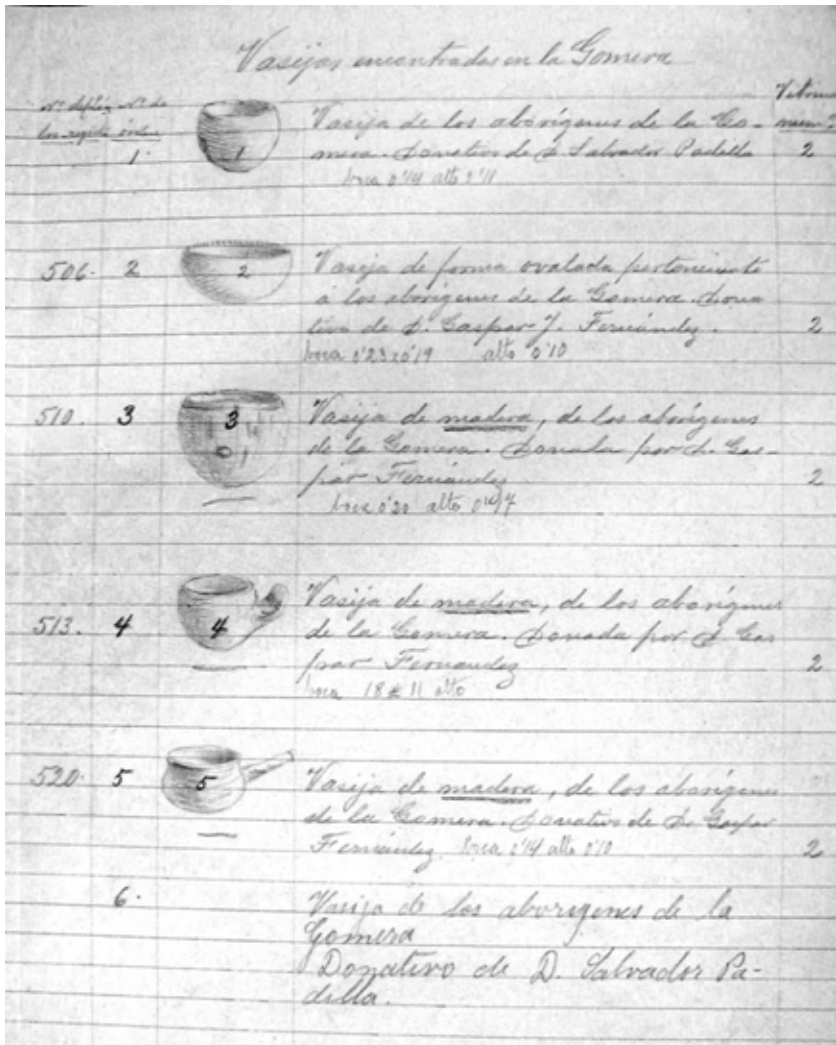 Vasijas encontradas en la Gomera
Nº de Nº de
orden
Vitrina
num?
1. 1 Vasija de los aborígenes de la Go-
mera. Donativo de D. Salvador Padilla 2
boca 0'14 alto 0'11
506. 2 2 Vasija de forma ovalada perteneciente
á los aborígenes de la Gomera. Dona
tivo de D. Gaspar J. Fernández. 2
boca 0'23x0'19 alto 0'10
510. 3 3 Vasija de madera, de los aborígenes
de la Gomera. Donada por D. Gas-
par Fernández 2
boca 0'20 alto
513. 4 4 Vasija de madera, de los aborígenes
de la Gomera. Donada por D. Gas
par Fernandez 2
boca 18 11 alto
520. 5 5 Vasija de madera, de los aborígenes
de la Gomera. Donativo de D. Gaspar
Fernández boca 0'14 alto 0'10 2
6. Vasija de los aborigenes de la
Gomera
Donativo de D. Salvador Pa-
dilla.